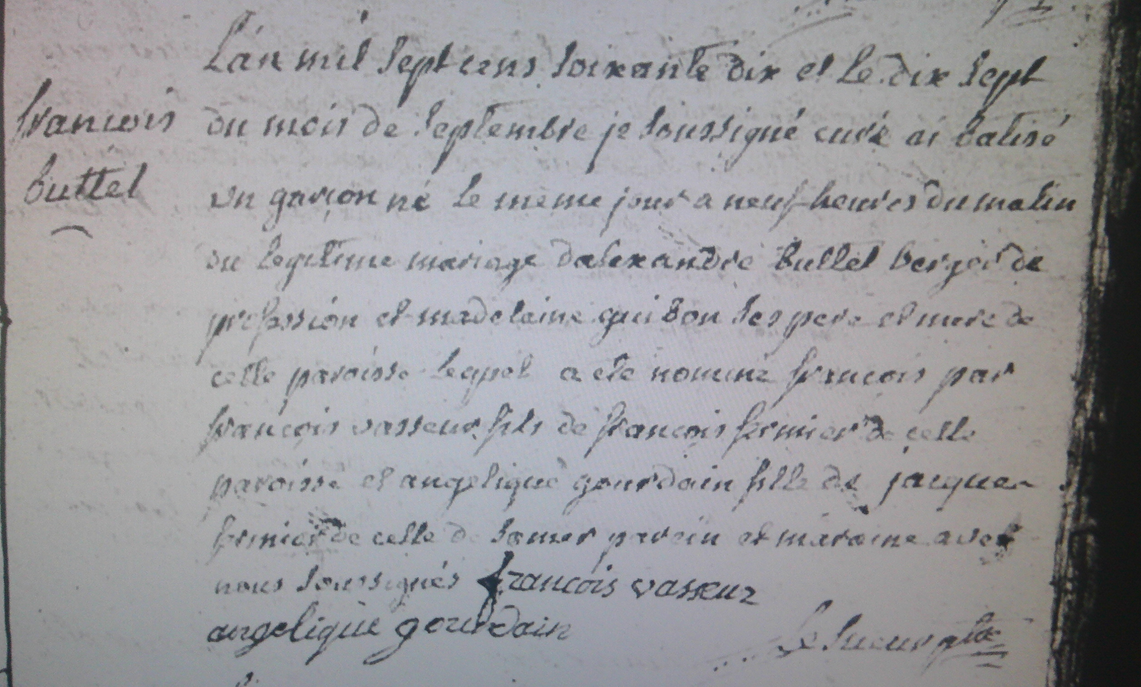 L'an mil sept cens soixante dix et le dix sept
francois du mois de septembre je soussigné curé ai batisé
buttel un garçon né le meme jour a neuf heures du matin
du legitime mariage dalexandre buttel berger de
profession et madelaine guibon ses pere et mere de
cette paroisse lequel a ete nommé francois par
françois vasseur fils de francois fermier de cette
paroisse et angelique gourdain fille de jacques
fermier de celle de samer parein et maraine avec
nous soussignés françois vasseur
angelique gourdain
Le sueur